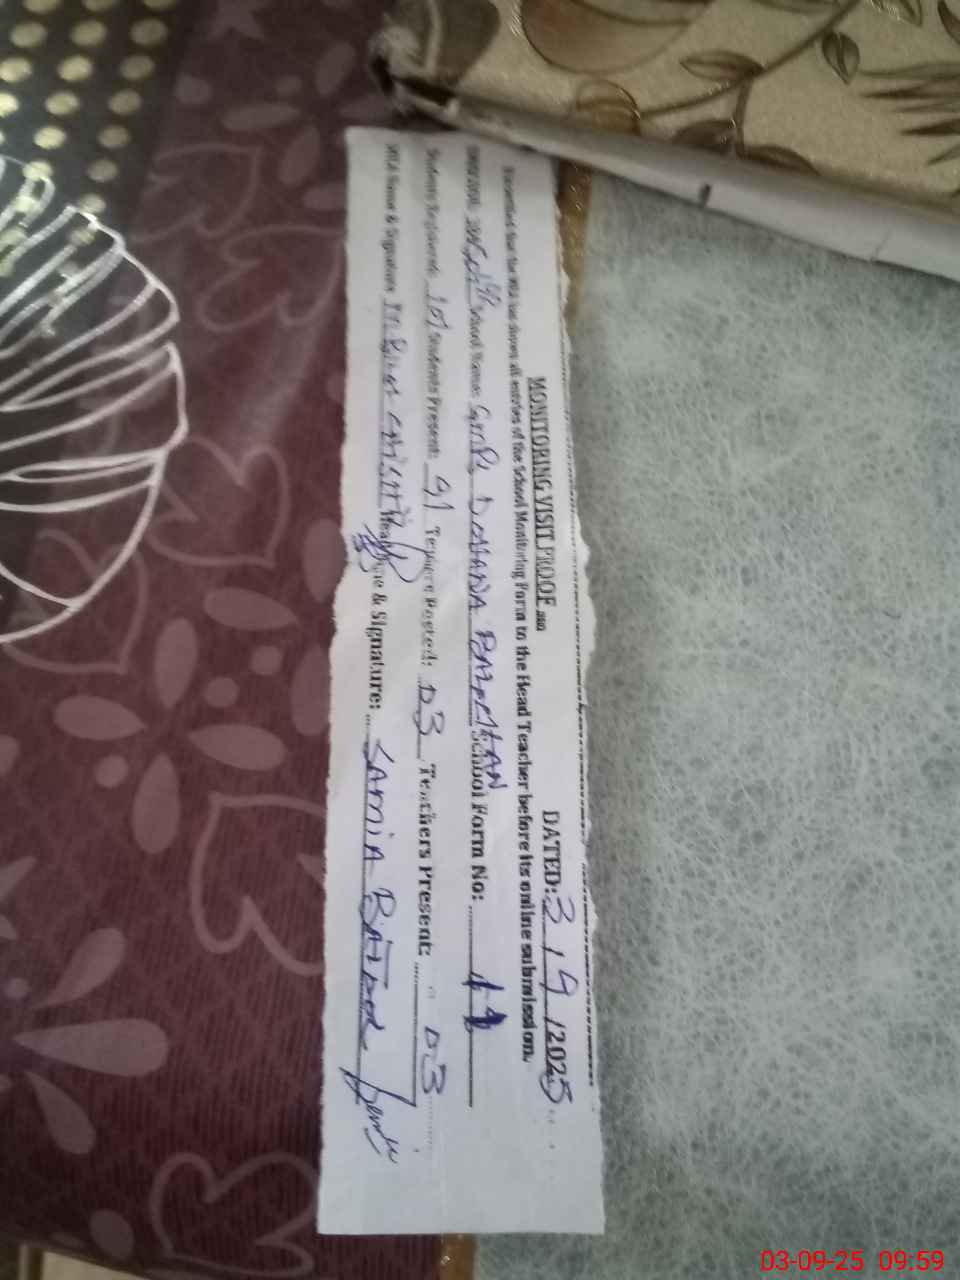 MONITORING VISIT PROOF DATED: 3 / 9 / 2025
that the MEA has shown all entries of the School Monitoring Form to the Head Teacher before its online submission.
School Name: GMPS DHANA School Form No: 11
Students Registered: 101 Students Present: 91 Teachers Posted: 03 Teachers Present: 03
MEA Name & Signature & Signature: SAMIA BATOOL
03-09-25 09:59